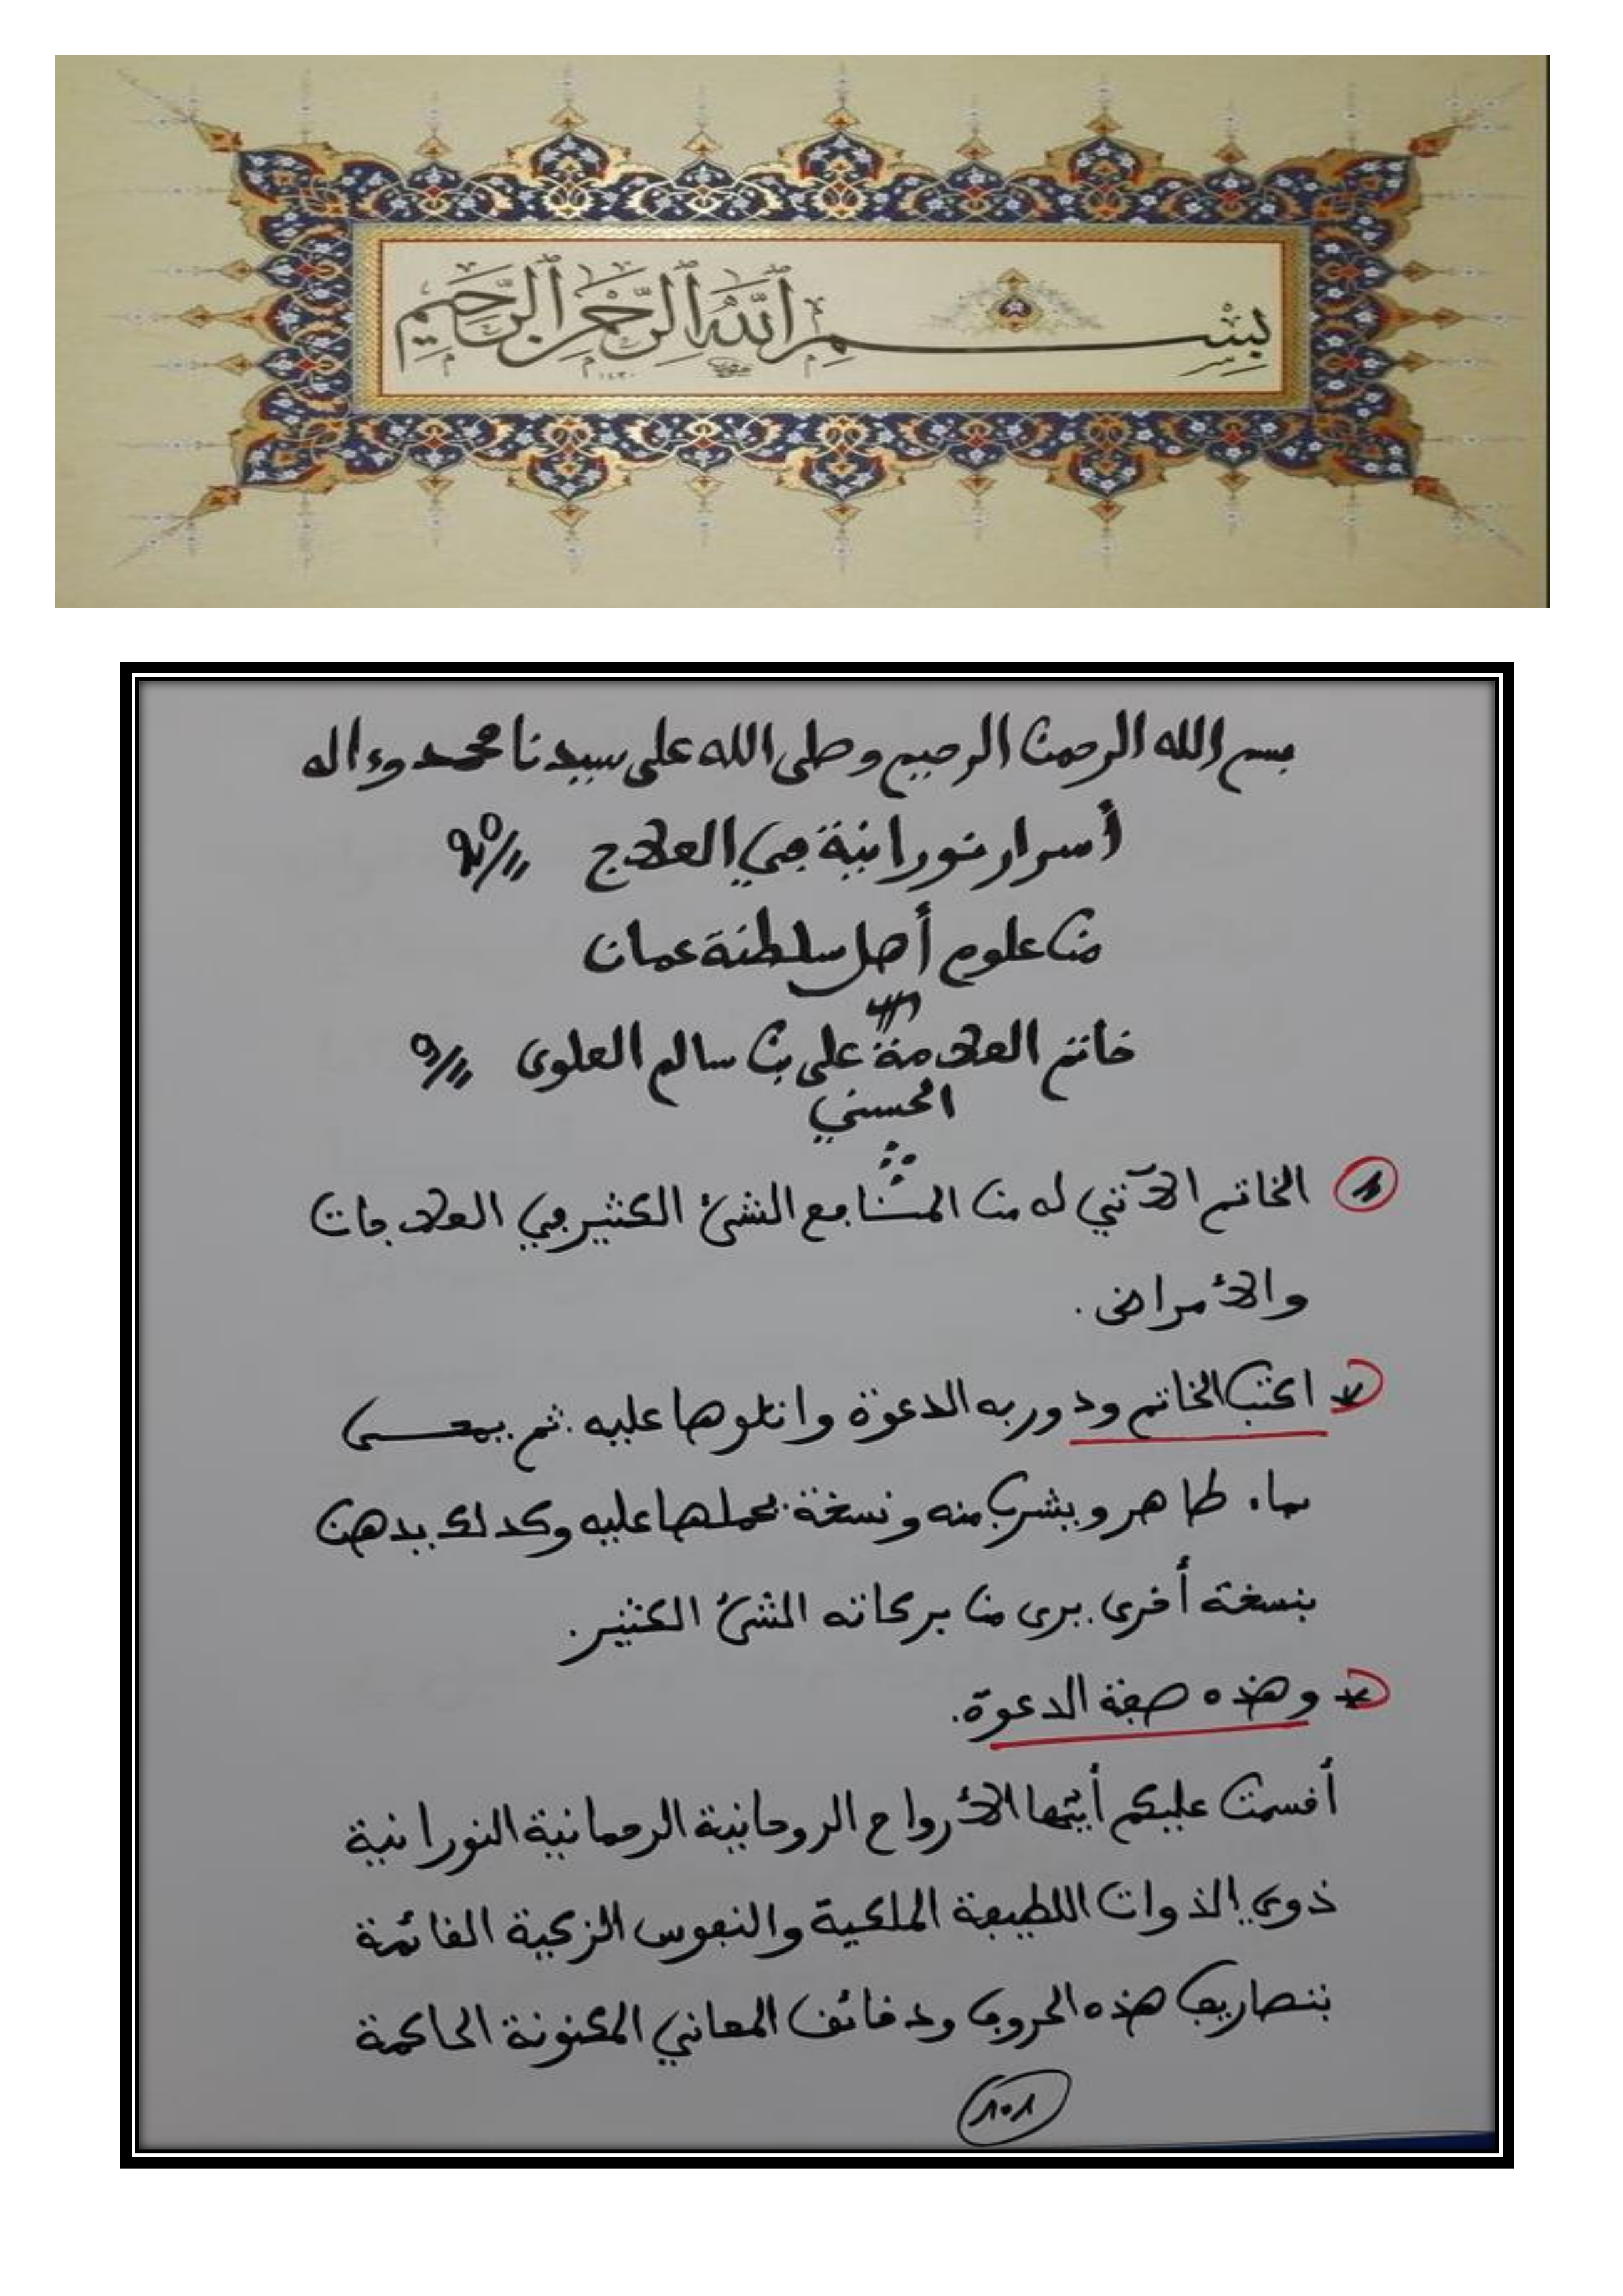 بِسْمِ ٱللَّهِ ٱلرَّحْمَٰنِ ٱلرَّحِيمِ
بسم الله الرحمن الرحيم وصلى الله على سيدنا محمد وءاله
أسرار نورانية في العلاج
من علوم أهل سلطنة عمان
خاتم العلامة علي بن سالم العلوى
الحسني
الخاتم الآتي له من المنافع الشئ الكثير في العلاجات
والأمراض.
اكتب الخاتم ودور به الدعوة واتلوها عليه. ثم يمحى
بماء طاهر ويشرب منه ونسخة يحملها عليه وكذلك يدهن
بنسخة أخرى. يرى من بركاته الشئ الكثير.
وهذه صفة الدعوة.
أقسمت عليكم أيتها الأرواح الروحانية الرحمانية النورانية
ذوي الذوات اللطيفة الملكية والنفوس الزكية القائمة
بتصاريف هذه الحروف ودقائق المعاني المكنونة الحاكمة